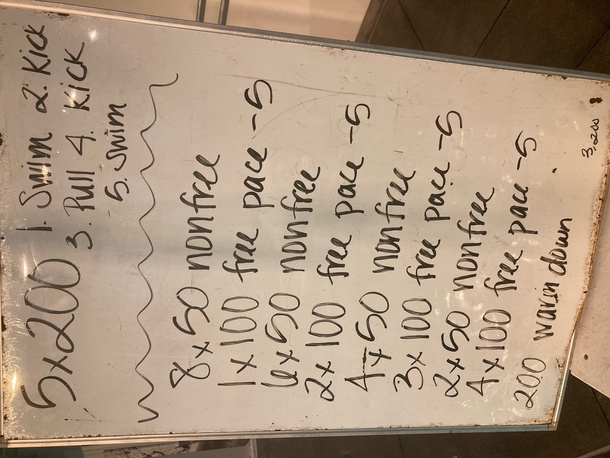 5x200 1. Swim 2. Kick
3. Pull 4. Kick
5. Swim
8x50 nonfree
1x100 free pace -5
6x50 nonfree
2x100 free pace -5
4x50 nonfree
3x100 free pace -5
2x50 nonfree
4x100 free pace -5
200 warm down
3,200